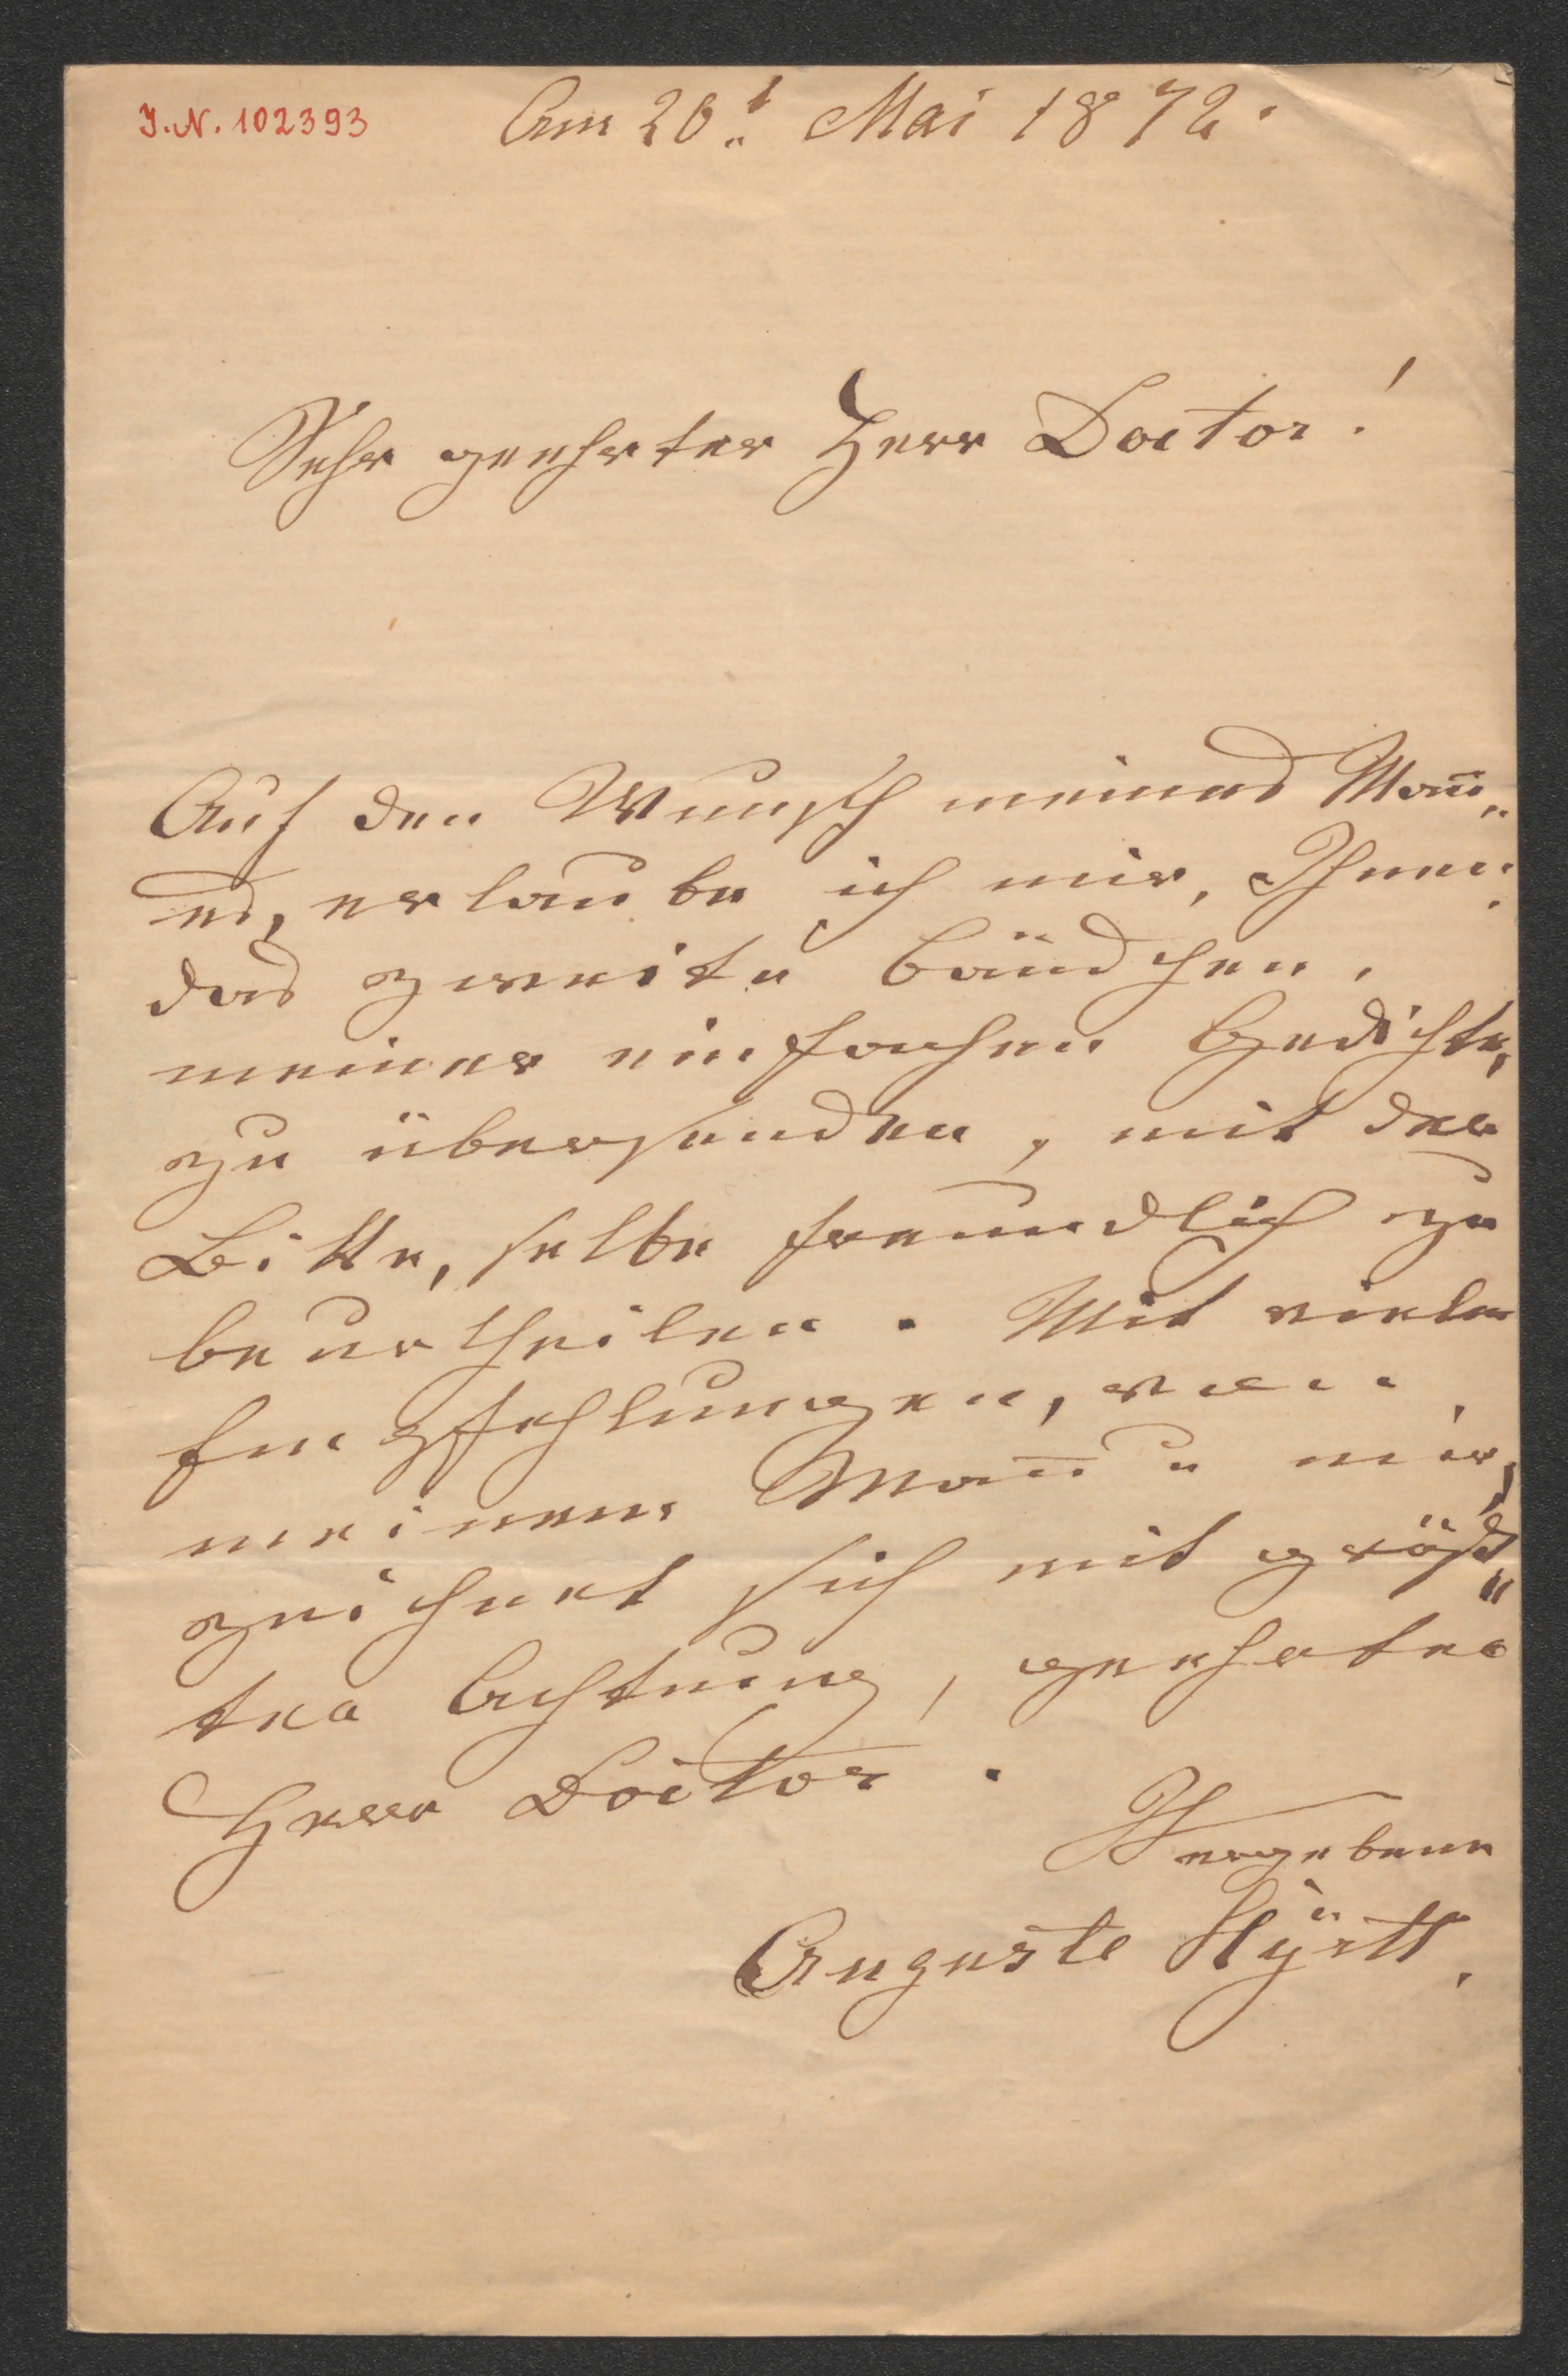 J.N. 102393
Am 20t. Mai 1872.
Sehr geehrter Herr Doctor!
Auf den Wunsch meines Man̄„
es, erlaube ich mir, Ihnen
das zweite Bändchen,
meiner einfachen Gedichte,
zu übersenden, mit der
Bitte, selbe freundlich zu
beurtheilen. Mit vielen
Empfehlungen, von
meinem Man̄ u mir,
zeichnet sich mit größ„
ter Achtung, geehrter
Herr Doctor.
Ihre ergebene
Auguste Hÿrtl.